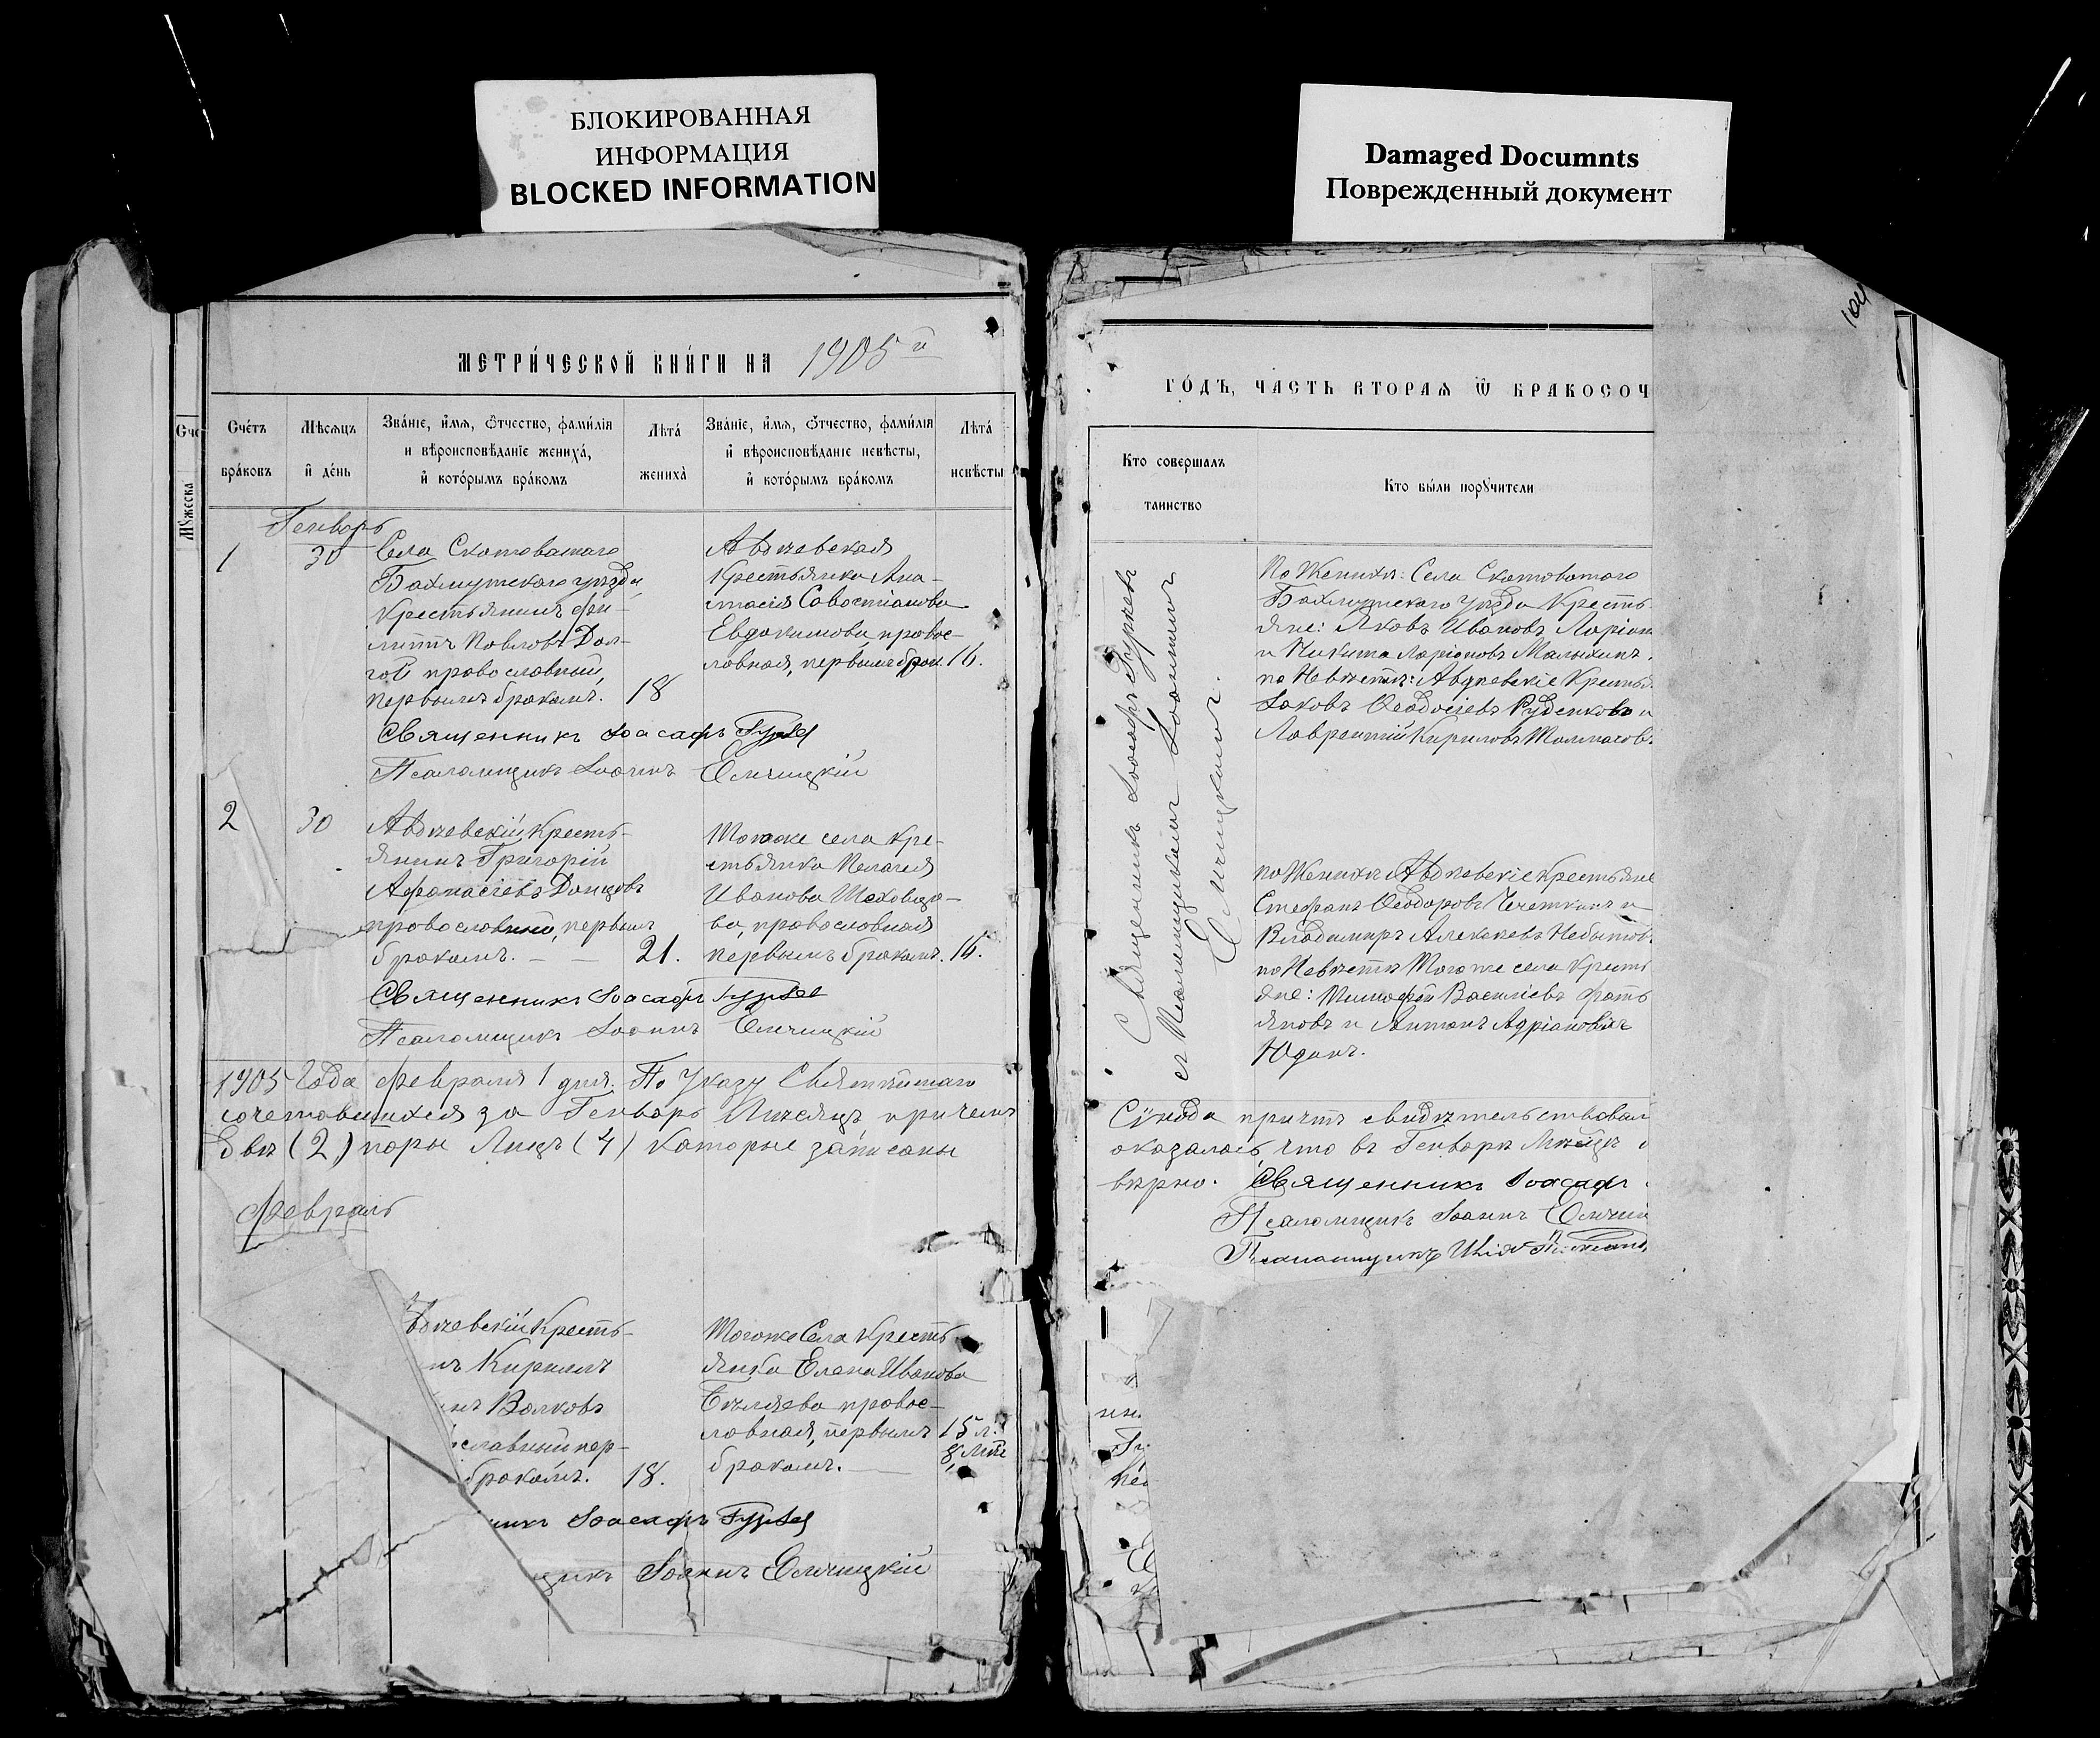 БЛОКИРОВАННАЯ
ИНФОРМАЦИЯ
BLOCKED INFORMATION
Damaged Documnts
Поврежденный документ
104
МЕТРИ́ЧЕСКОЙ КНИ́ГИ НА 1905й
Сче́тъ
бра́ковъ
Мѣсяцъ
и҆ де́нь
Зва́нїе, и҆мѧ, ѻ҆́тчество, фами́лїѧ
и вѣроисповѣ́данїе жениха́,
и҆ кото́рымъ бра́комъ
Лѣта́
жениха̀
Зва́нїе, и҆мѧ, ѻ҆́тчество, фами́лїѧ
и҆ вѣроисповѣ́данїе невѣ́сты,
и҆ кото́рымъ бра́комъ
Лѣта́
невѣ́сты
Мꙋжеска
Генварь
1
30
Села Скотоватаго
Бахмутскаго уѣзда
крестьянинъ Фи-
липпъ Павловъ Дол-
гов православный,
первымъ бракомъ. 18
Авдѣевская
крестьянка Ана-
стасія Савостіанова
Евдокимова правос-
лавная, первымъ брак. 16.
Священникъ Іоасафъ Гурьев
Псаломщикъ Іоаннъ Елчицкій
2
30
Авдѣевскій кресть-
янинъ Григорій
Афанасіевъ Донцовъ
православный, первымъ
бракомъ. — — 21.
Тогоже села кре-
стьянка Пелагея
Иванова Шаховцо-
ва, православная
первымъ бракомъ. 16.
Священникъ Іоасафъ Гурьев
Псаломщикъ Іоаннъ Елчицкій
1905 Года Февраля 1 дня. По Указу Святѣйшаго
сочетавшихся за Генварь Мѣсяцъ причемъ
двѣ (2) пары Лицъ (4) которые записаны
Февраль
вдѣевскій кресть-
нъ Кириллъ
нъ Волковъ
славный пер-
бракомъ. 18.
Тогоже Села кресть
янка Елена Иванова
Бѣляева правос-
лавная, первымъ 15 л.
бракомъ. — 8 мѣс
икъ Іоасафъ Гурьев
щикъ Іоаннъ Елчицкій
ГО́ДЪ, ЧАСТЬ ВТОРАѦ Ѽ БРАКОСОЧ
Кто совершалъ
таинство
Кто бы́ли порꙋчи́тели
Священникъ Іоасафъ Гурьевъ
съ Псаломщикомъ Іоанномъ
Елчицкимъ.
По Женихѣ: Села Скотоватого
Бахмутскаго Уѣзда Кресть
яне: Яковъ Ивановъ Ларіон
и Никита Ларіоновъ Малыхинъ.
по Невѣстѣ: Авдѣевскіе Крестья
Іаковъ Ѳеодосіевъ Руденковъ и
Лаврентій Кириловъ Толмачовъ
по Женихѣ Авдѣевскіе крестьяне
Стефанъ Ѳеодоровъ Чечеткинъ и
Владимиръ Алексѣевъ Небытов
по Невѣстѣ Тогоже села Кресть
яне: Тимофей Василіевъ Фать
яновъ и Антонъ Адріановичъ
Юдинъ.
Сѵнода причтъ свидѣтельствовал
оказалось, что въ Генварѣ Мѣсяцѣ
вѣрно. Священникъ Іоасафъ
Псаломщикъ Іоаннъ Елчиц
Псаломщикъ